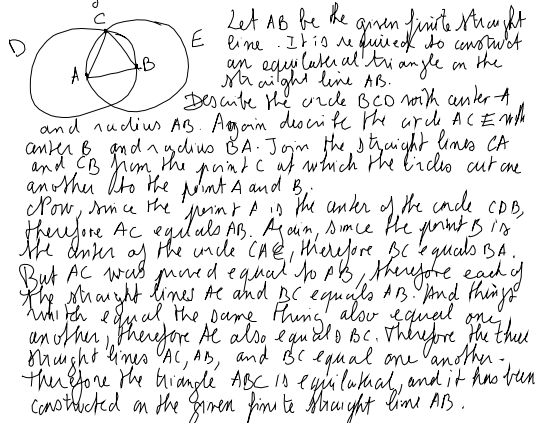 C
D
E
A
B
Let AB be the given finite straight
line. It is required to construct
an equilateral triangle on the
straight line AB.
Describe the circle BCD with center A
and radius AB. Again describe the circle ACE with
center B and radius BA. Join the straight lines CA
and CB from the point C at which the circles cut one
another to the point A and B.
Now, since the point A is the center of the circle CDB,
therefore AC equals AB. Again, since the point B is
the center of the circle CAE, therefore BC equals BA.
But AC was proved equal to AB, therefore each of
the straight lines AC and BC equals AB. And things
which equal the same thing also equal one
another, therefore AC also equals BC. Therefore the three
straight lines AC, AB, and BC equal one another.
Therefore the triangle ABC is equilateral, and it has been
constructed on the given finite straight line AB.